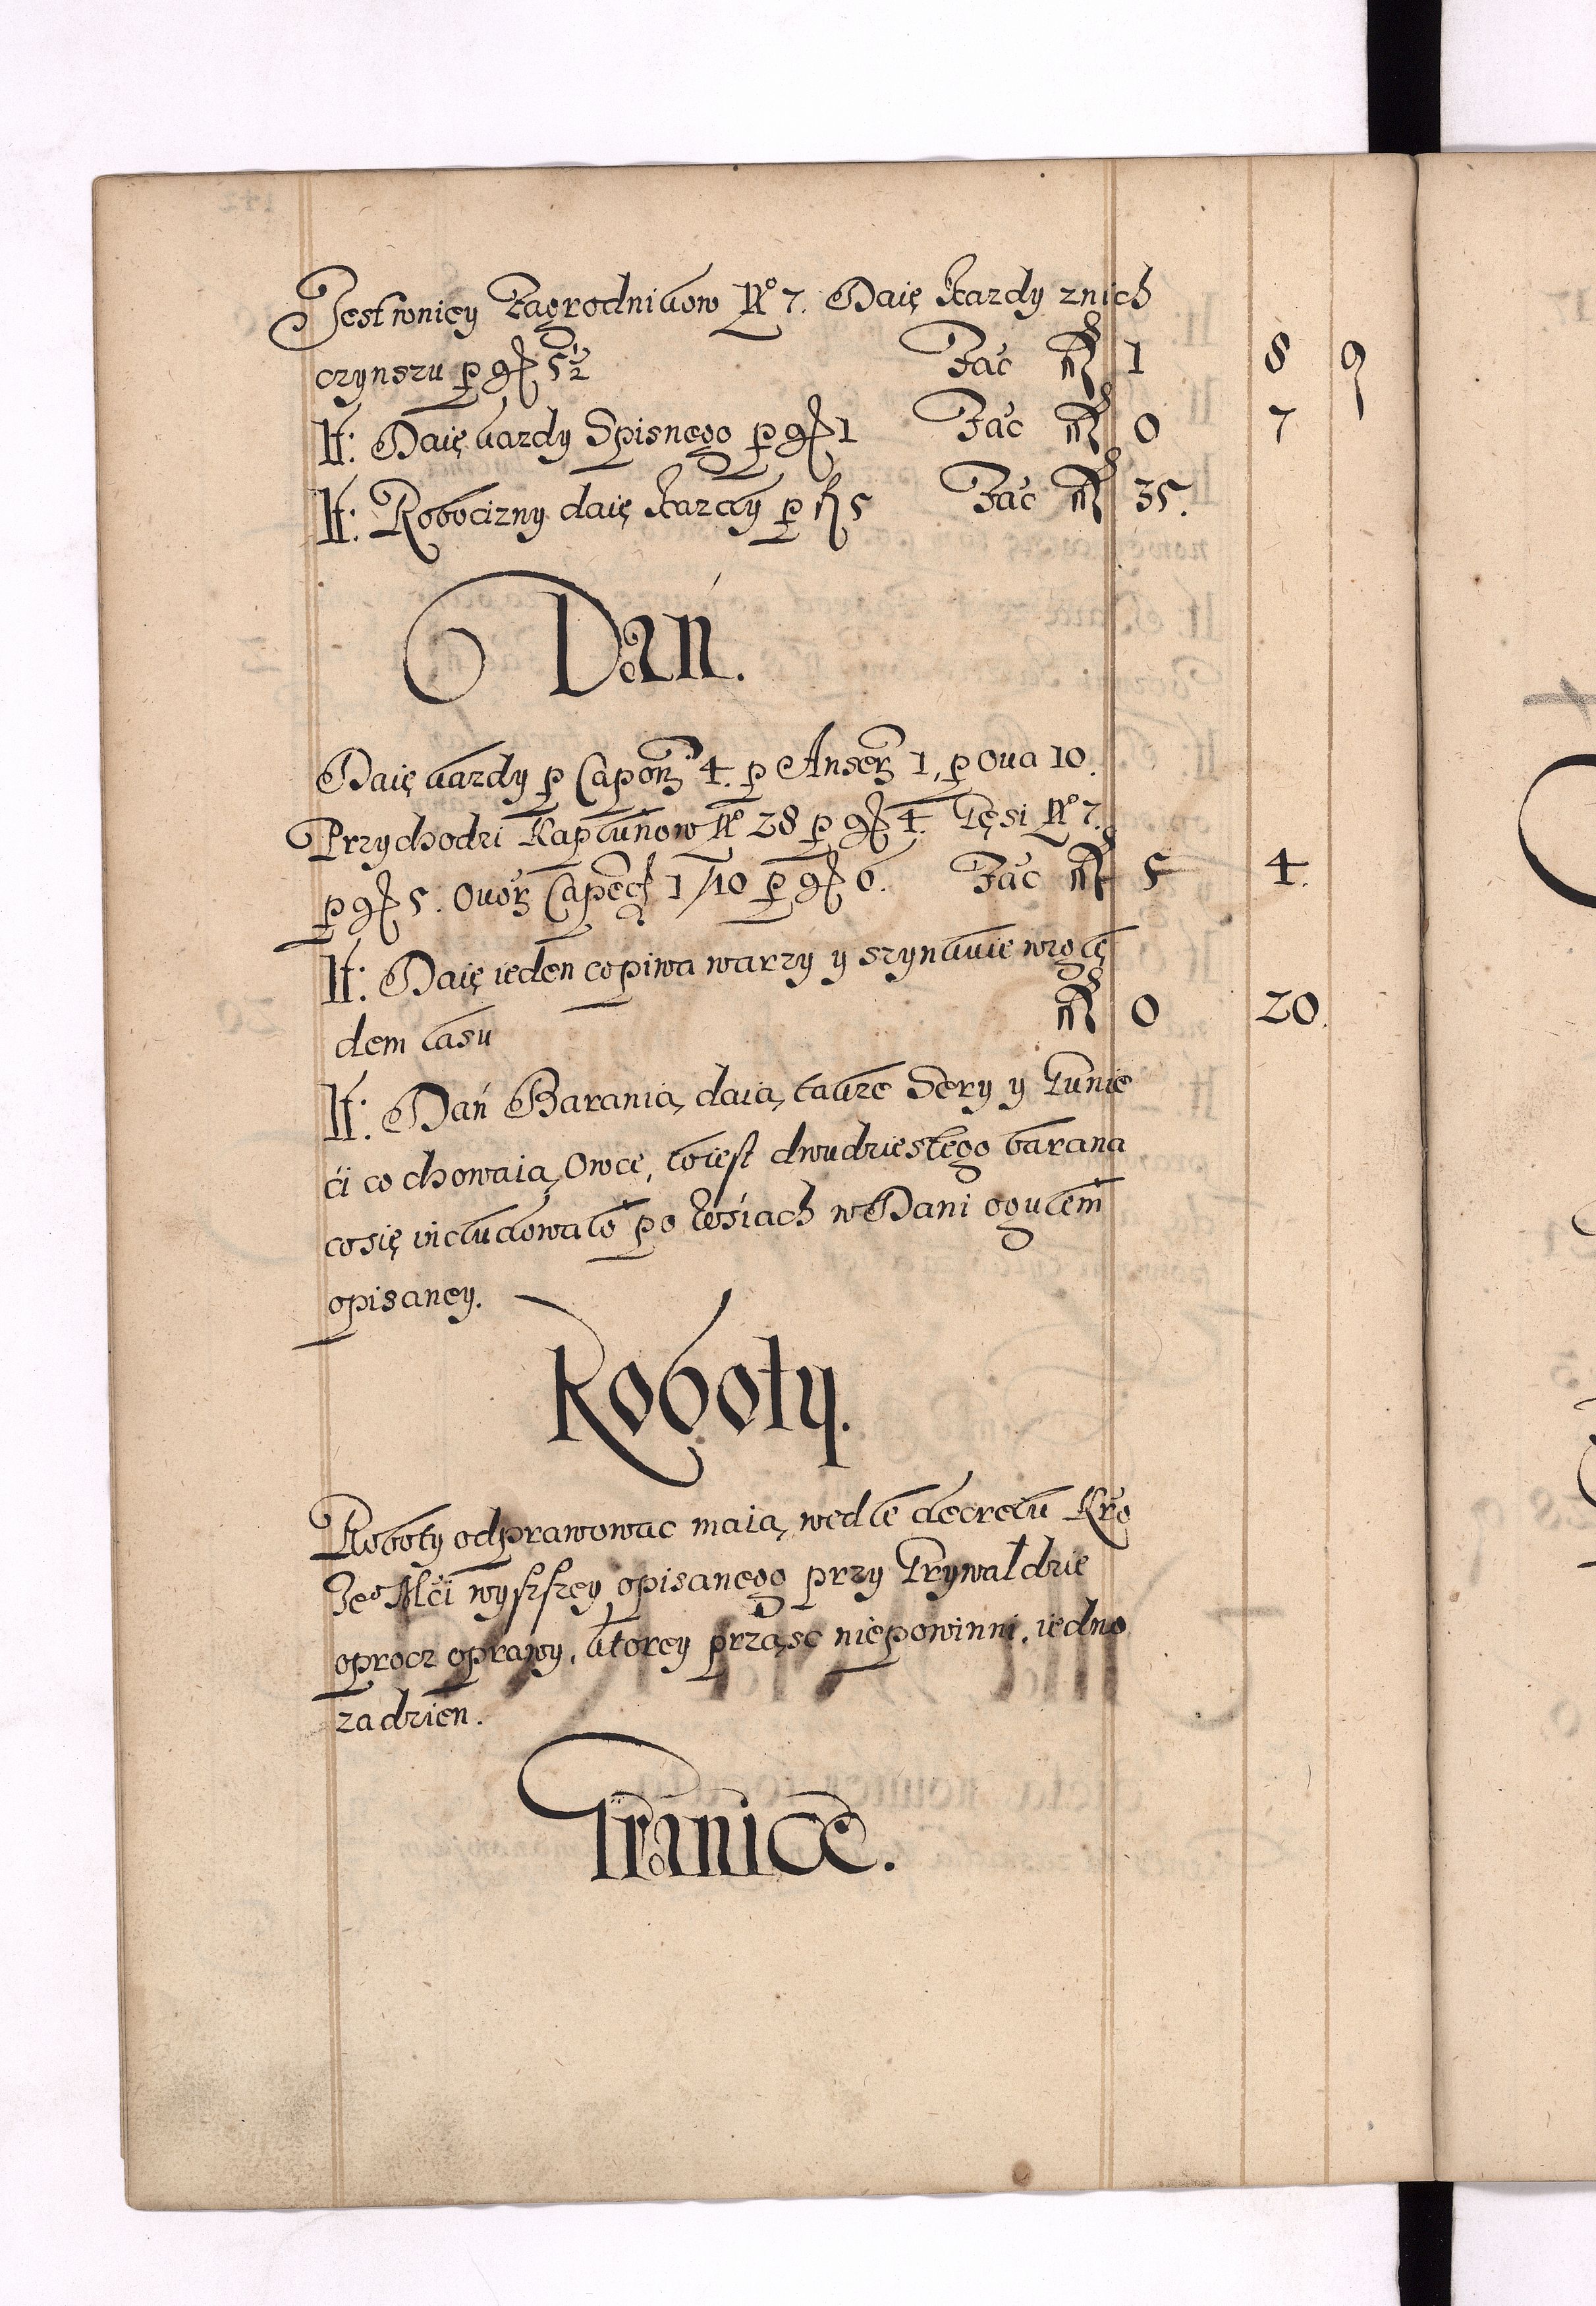 Jest w niey Zagrodnikow No 7. Daię kazdy z nich
czynszu p gr 5 1/2 Fac fl 1 8 9
It: Daię kazdy Spisnego p gr 1 Fac fl 0 7
It: Robocizny daię kazdy p fl 5 Fac fl 35.
Dań.
Daię kazdy p Capon 4. p Anser 1, p Ova 10.
Przychodzi Kapłunow No 28 p gr 4. Gęsi No 7.
p gr 5. Ovor Capet 1/10 p gr 6. Fac fl 5 4.
It: Daię ieden co piwa warzy y szynkuie wzglę
dem lasu fl 0 20.
It: Dań Barania, daią takze Sery y Gunie
ci co chowaią Owce, to iest dwudziestego barana
co się includowało po wsiach w Dani ogułem
opisaney.
Roboty.
Roboty odprawowac maią wedle decretu Kro
Jeo Mci wyszszey opisanego przy Grywałdzie
oprocz oprawy, ktorey prząsc niepowinni, iedno
za dzien.
Granice.